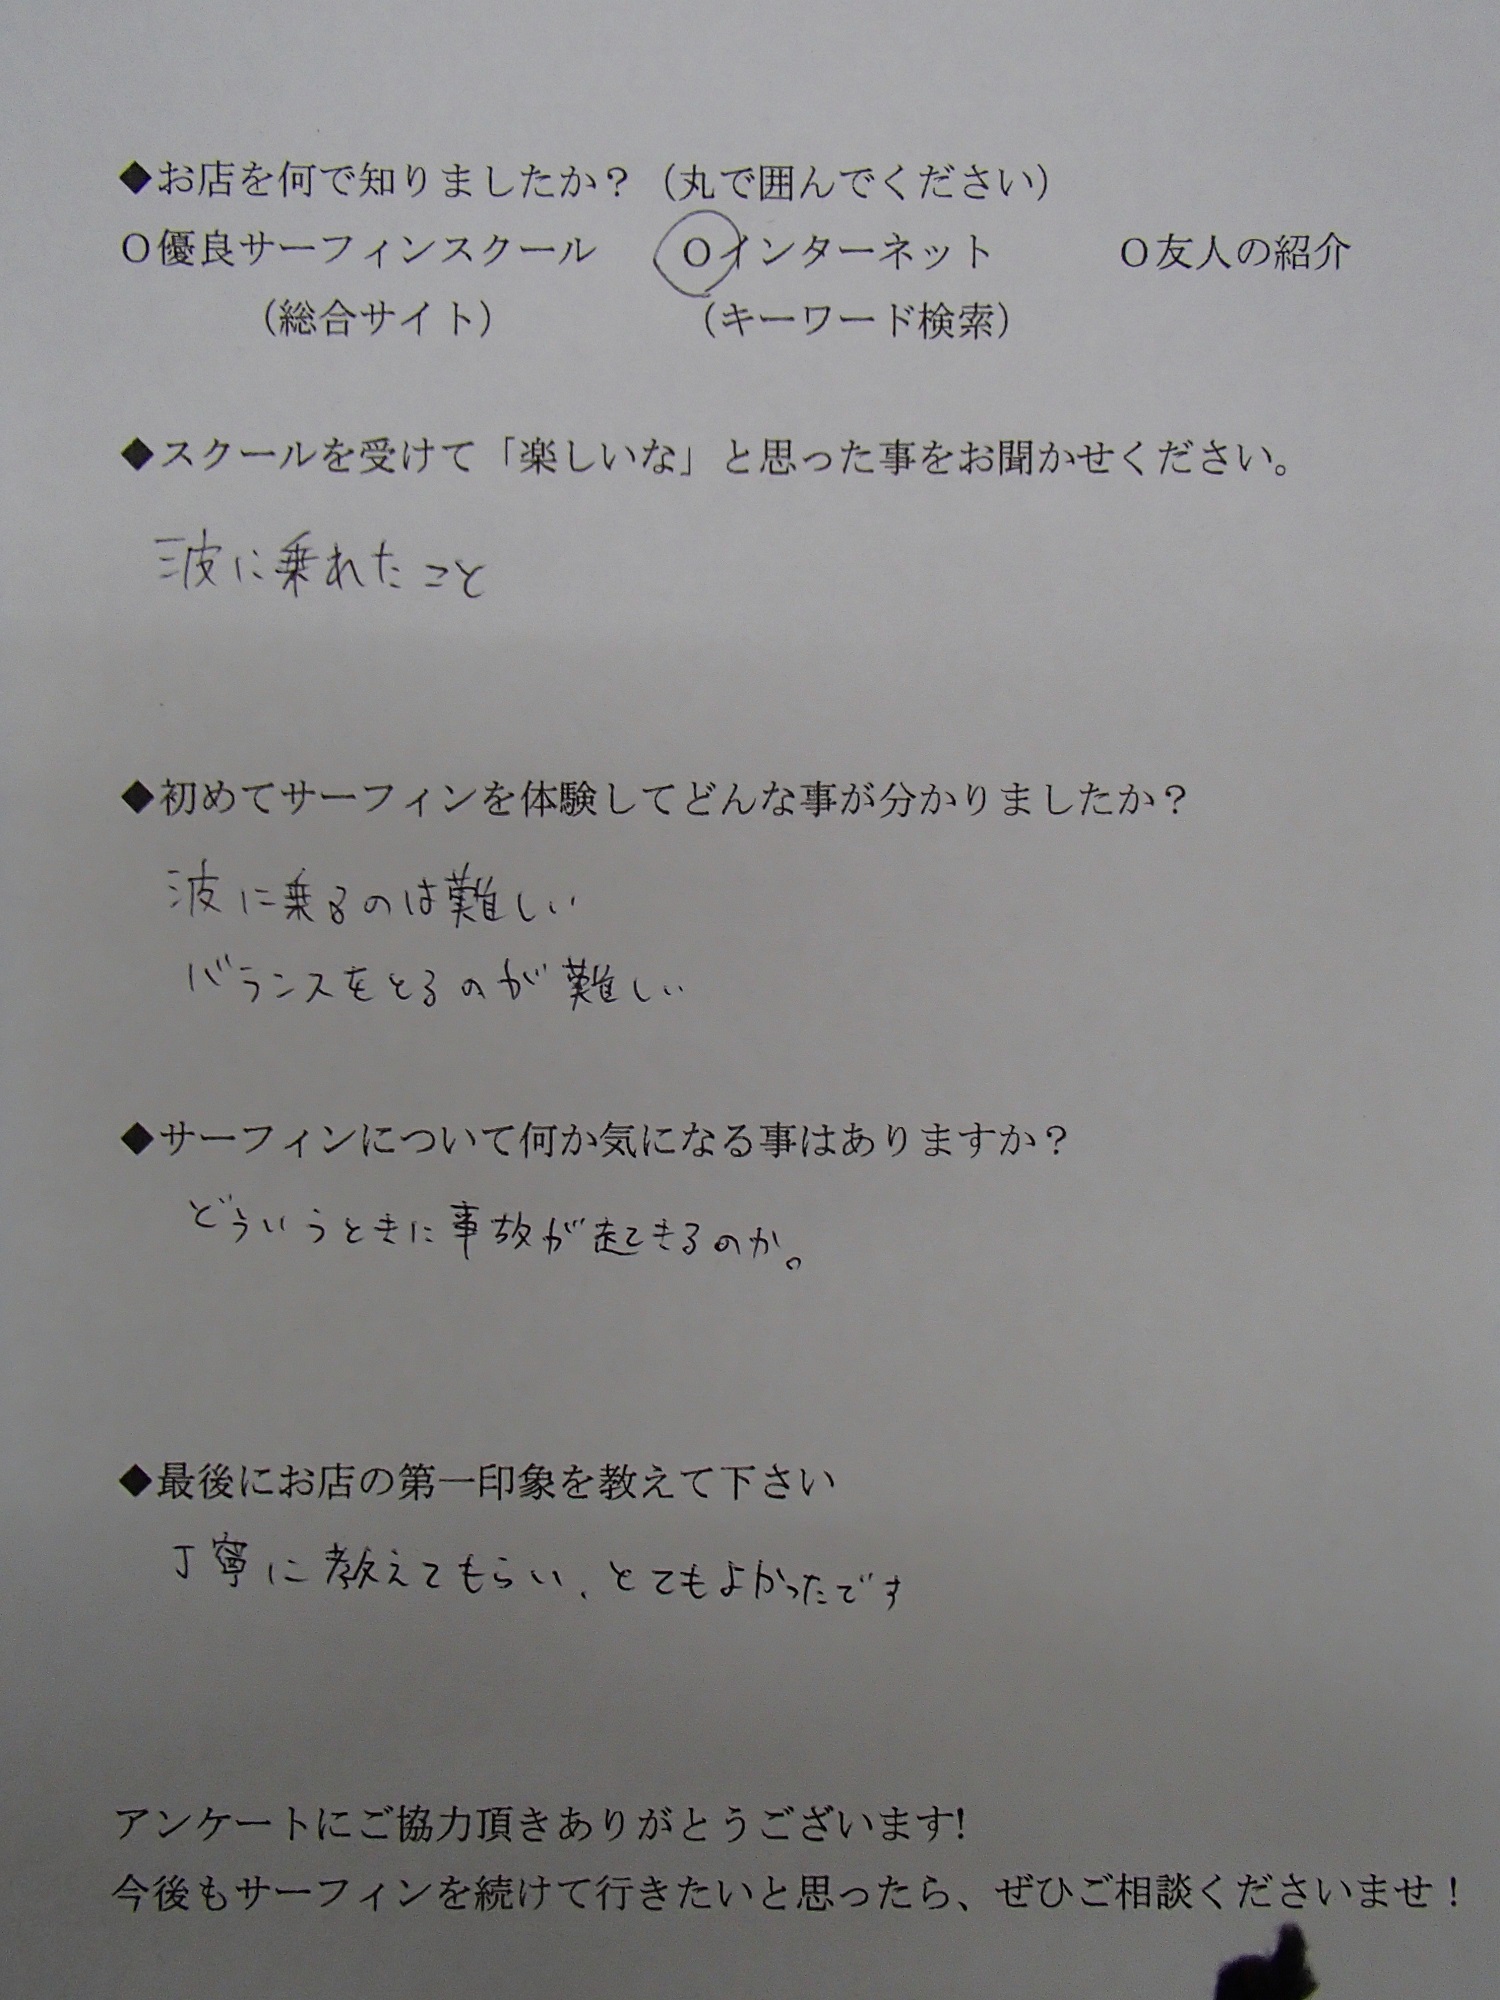 ◆お店を何で知りましたか？（丸で囲んでください）
○優良サーフィンスクール ○インターネット ○友人の紹介
（総合サイト） （キーワード検索）
◆スクールを受けて「楽しいな」と思った事をお聞かせください。
波に乗れたこと
◆初めてサーフィンを体験してどんな事が分かりましたか？
波に乗るのは難しい
バランスをとるのが難しい
◆サーフィンについて何か気になる事はありますか？
どういうときに事故が起きるのか。
◆最後にお店の第一印象を教えて下さい
丁寧に教えてもらい、とてもよかったです
アンケートにご協力頂きありがとうございます!
今後もサーフィンを続けて行きたいと思ったら、ぜひご相談くださいませ！